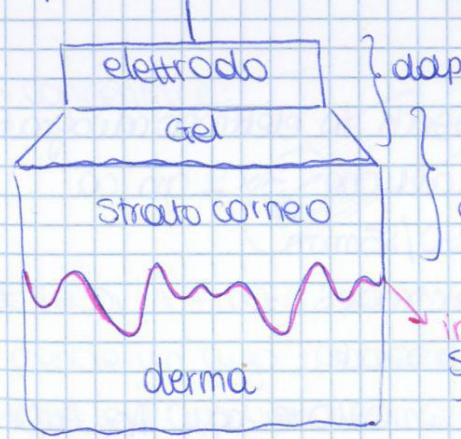 elettrodo
Gel
strato corneo
derma